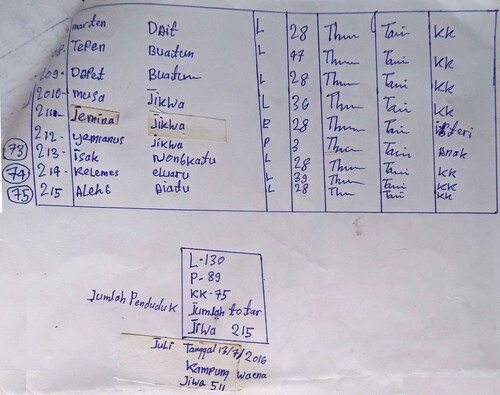 marten DAit L 28 Thn Tani KK
208- Tepen Buatun L 47 Thn Tani KK
209- DAPet Buatun L 28 Thn Tani KK
2010- musa Jikwa L 36 Thn Tani KK
211- Jemina Jikwa P 28 Thn Tani isteri
212- yemianus Jikwa P 3 Thn Tani Anak
73 213- isak Wongkatu L 28 Thn Tani KK
74 214- Kelemes eluaru L 39 Thn Tani KK
75 215 Aleh6 Aiatu L 28 Thn Tani KK
L-130
P-89
KK-75
Jumlah Penduduk Jumlah totar
Jiwa 215
Juli Tanggal 13/7/2016
Kampung waena
Jiwa 511